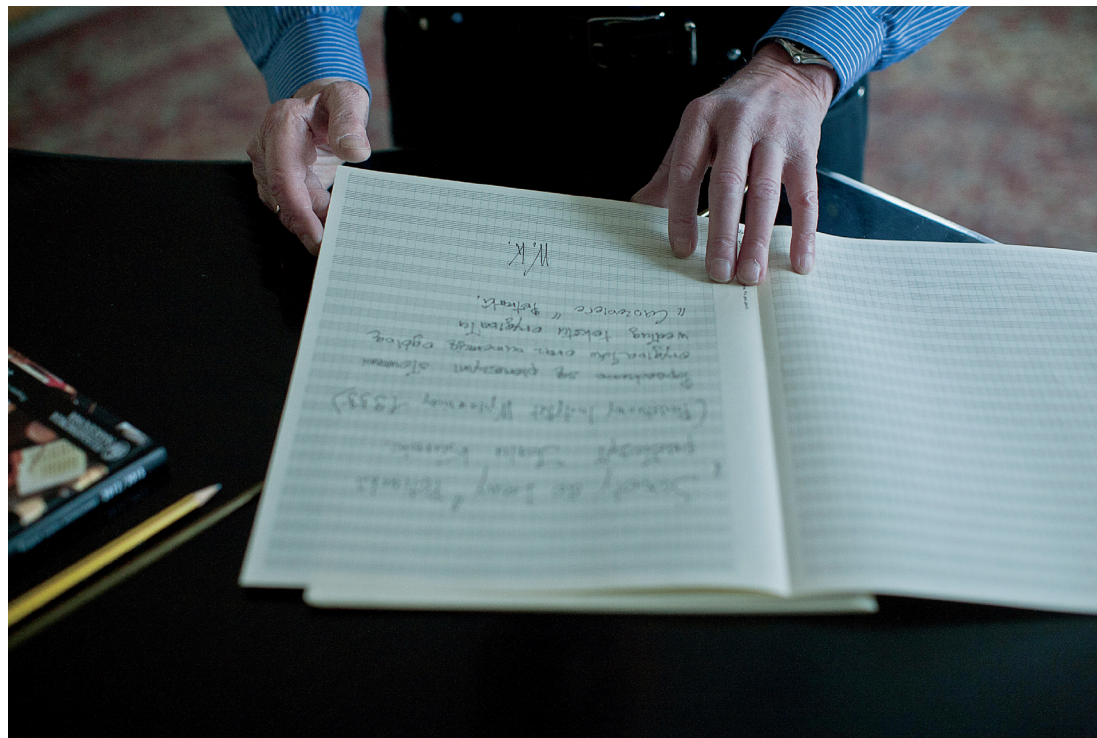 „Sonety do Laury" Petrarki
przełożył Jalu Kurek
(Państwowy Instytut Wydawniczy
się pierwszymi słowami
oryginału oraz numeracją ogólną
według tekstu oryginału
„Canzoniere" Petrarki.
W.K.